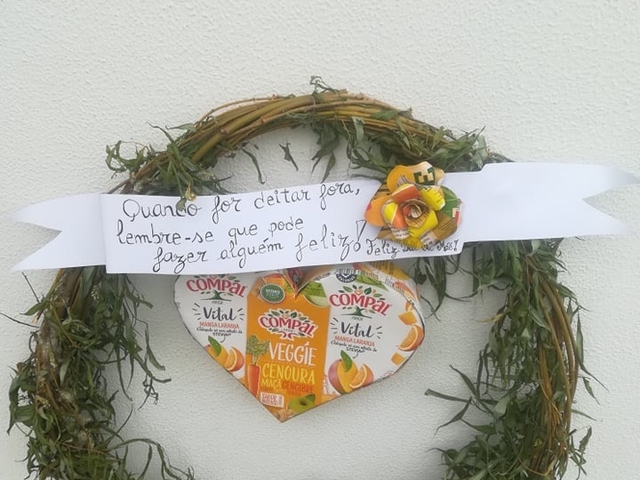 Quando for deitar fora,
lembre-se que pode
fazer alguém feliz!
Feliz
COMPAL
Vital
MANGA LARANJA
COMPAL
VEGGIE
CENOURA
MAÇÃ GENGIBRE
COMPAL
Vital
MANGA LARANJA